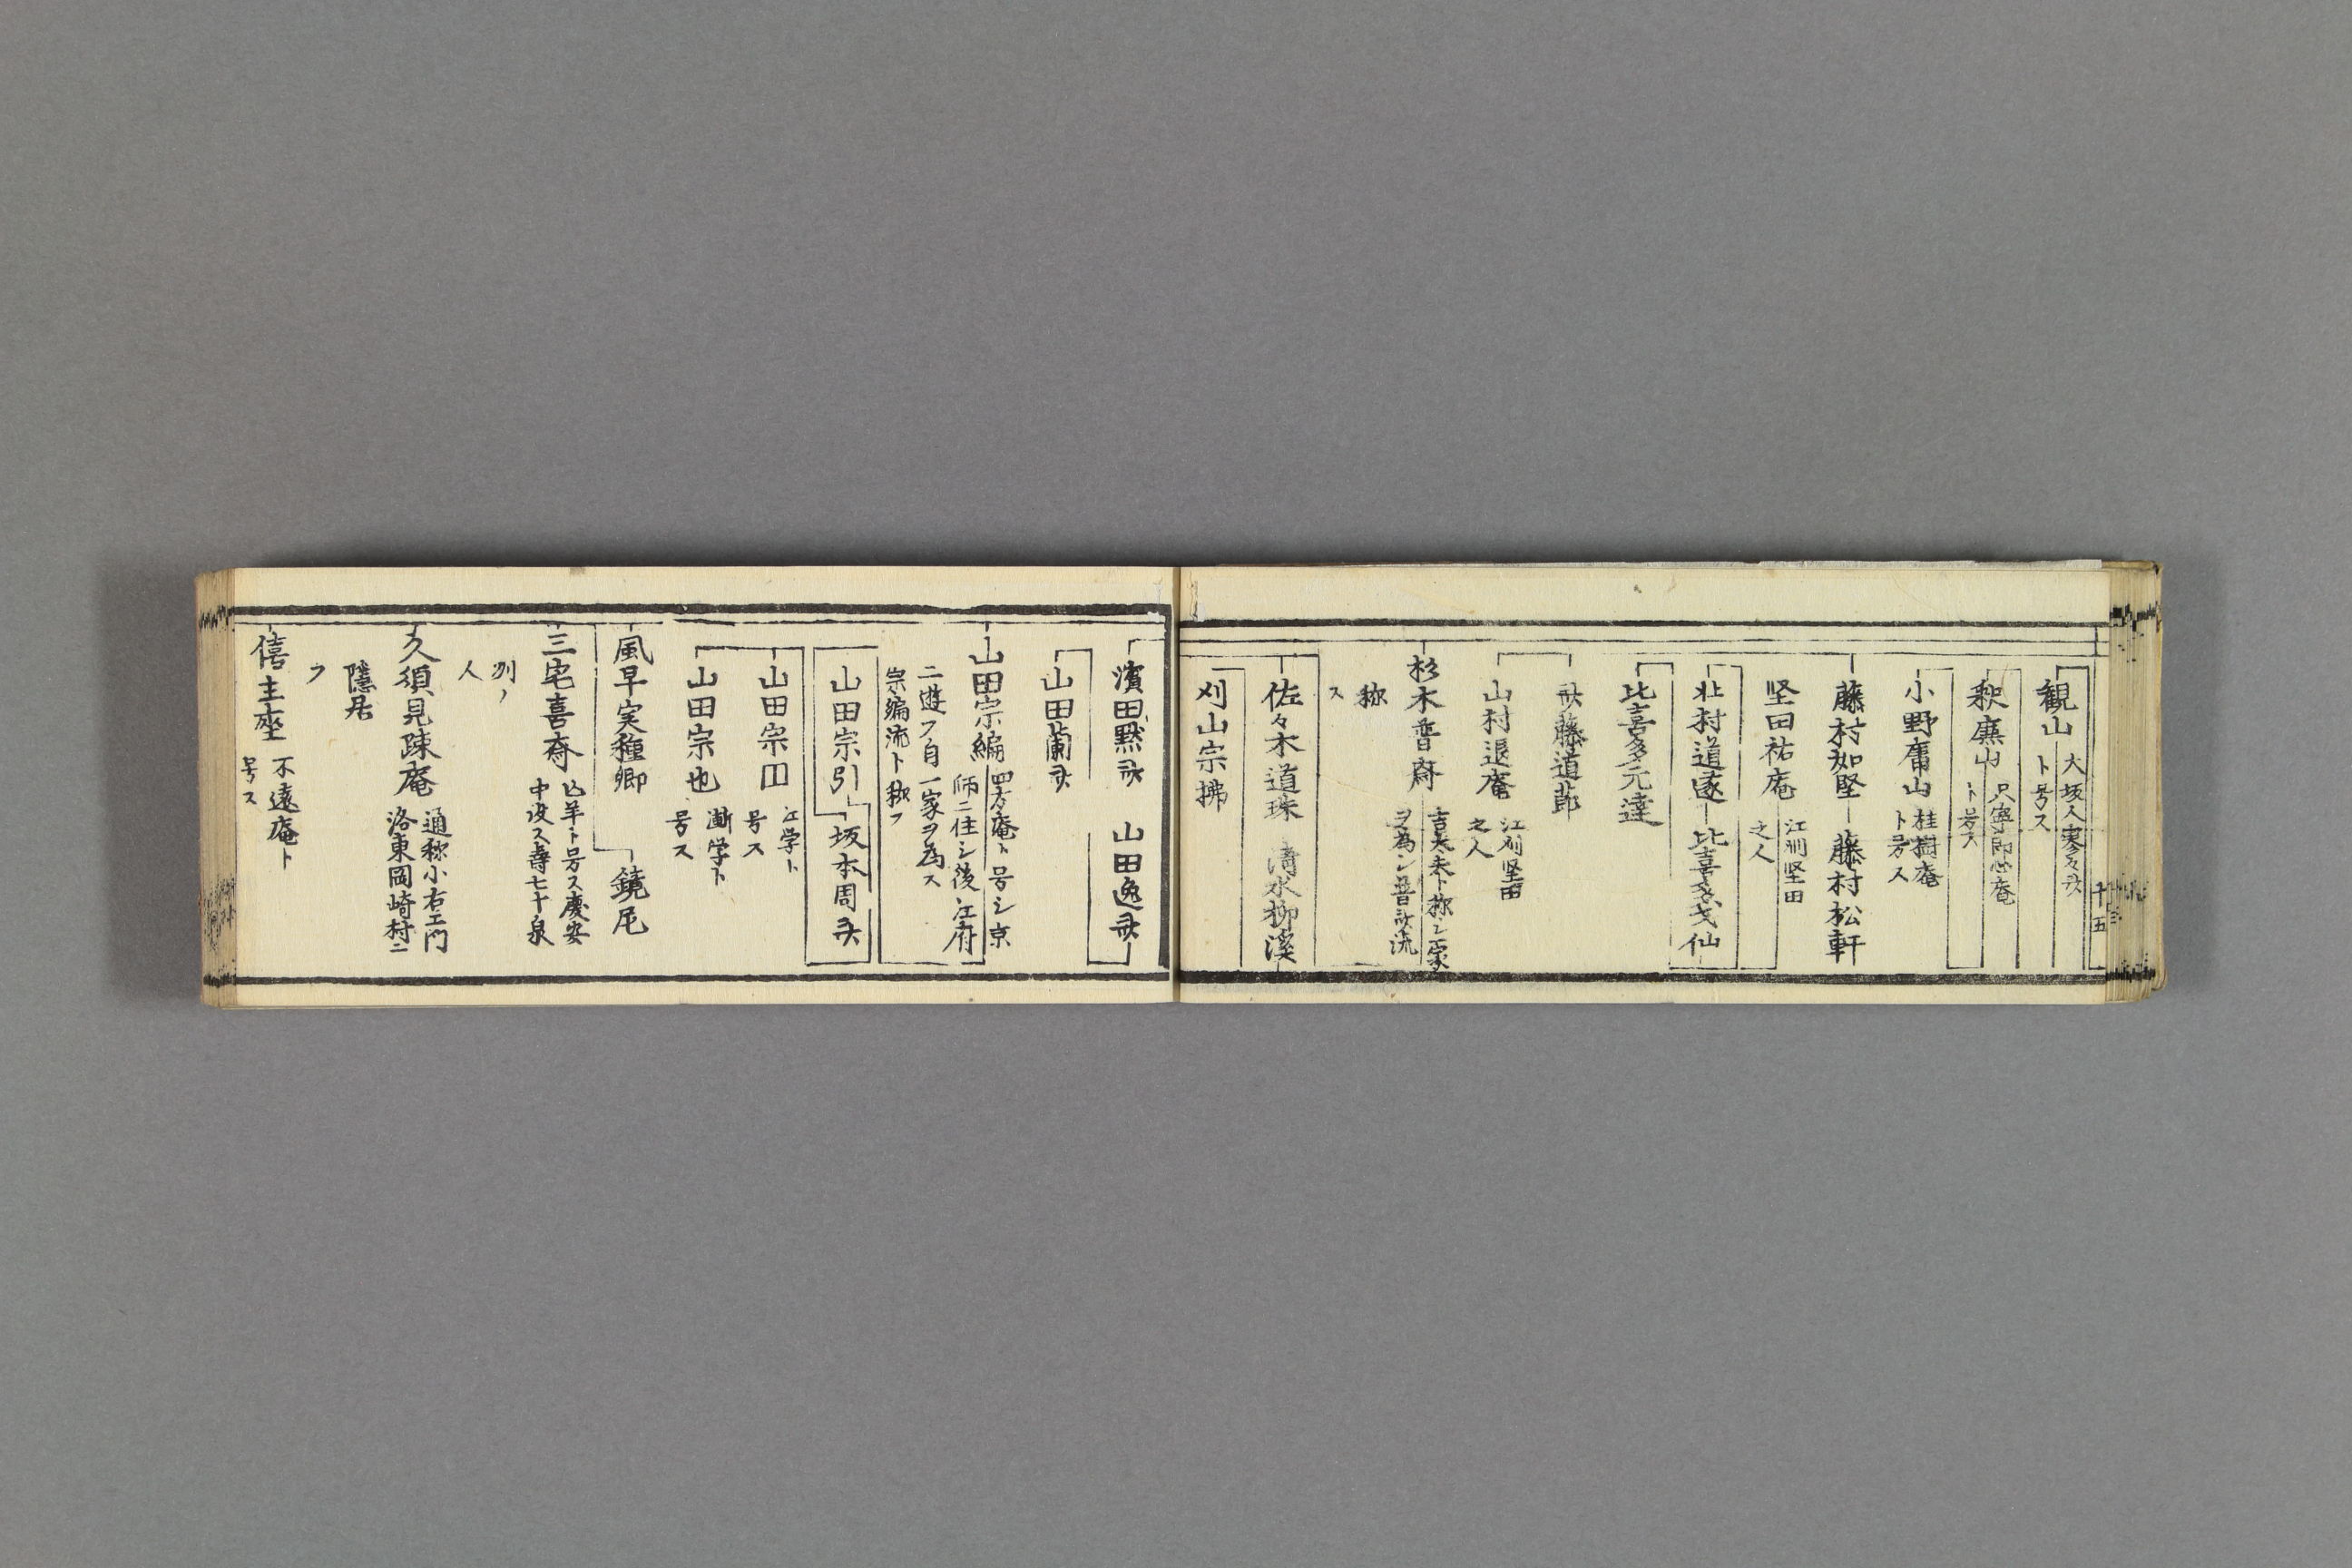 十五
観山
大坂人寒々斎
ト号ス
釈廉山
尺寧即心庵
ト号ス
小野庸山
桂樹庵
ト号ス
藤村知堅
藤村松軒
堅田祐庵
江州堅田
之人
北村道遂
比喜多宗仙
比喜多元達
後藤道節
山村退庵
江州堅田
之人
杉木普斎
ト称シ一家
ヲ為シ普斎流
称
ス
佐々木道珠
清水柳溪
刈山宗拂
濱田黙斎
山田逸斎
山田蘭斎
山田宗編
四方庵ト号シ京
師ニ住シ後江府
ニ遊フ自一家ヲ為ス
宗編流ト称フ
山田宗引
坂本周斎
山田宗円
江学ト
号ス
山田宗也
漸学ト
号ス
風早実種卿
鏡尼
三宅喜斎
亡羊ト号ス慶安
中没ス寿七十泉
州ノ
人
久須見疎庵
通称小右エ門
洛東岡崎村ニ
隠居
フ
僖主座
不遠庵ト
号ス